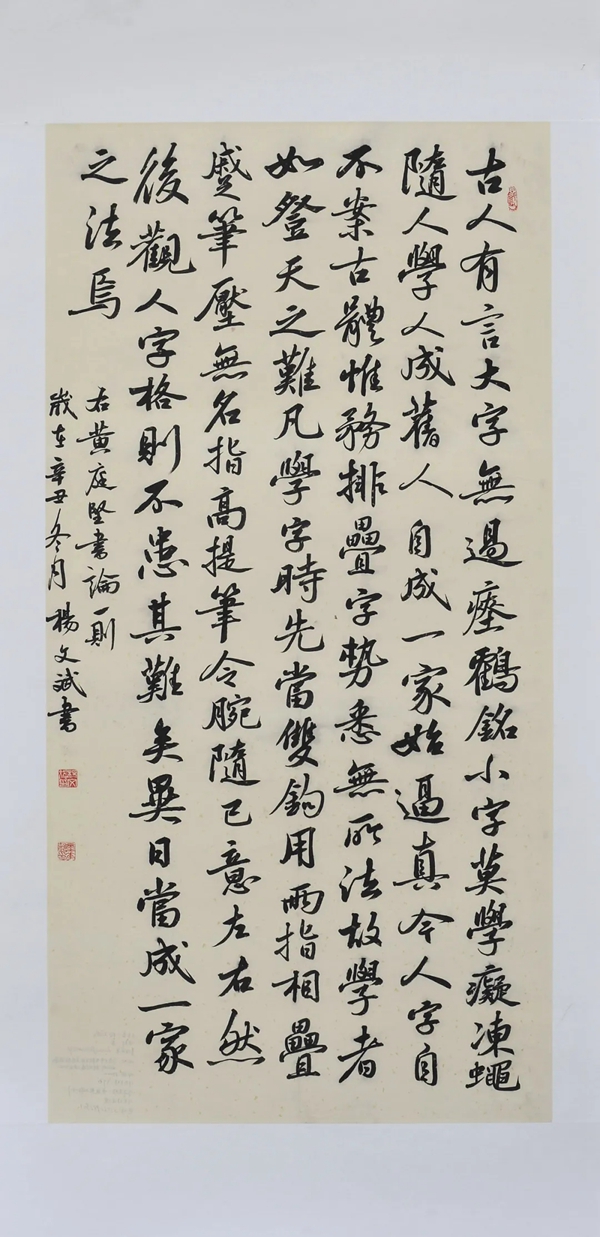 古人有言大字無過瘞鶴銘小字莫學癡凍蠅
隨人學人成舊人自成一家始逼真今人字自
不案古體惟務排疊字勢悉無所法故學者
如登天之難凡學字時先當雙鈎用兩指相疊
蹙筆壓無名指高提筆令腕隨己意左右然
後觀人字格則不患其難矣異日當成一家
之法焉
右黄庭堅書論一則
歲在辛丑冬月楊文斌書